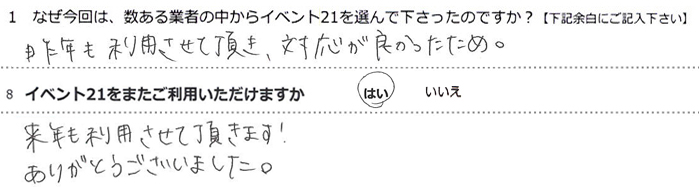 1 なぜ今回は、数ある業者の中からイベント21を選んで下さったのですか？【下記余白にご記入下さい】
昨年も利用させて頂き、対応が良かったため。
8 イベント21をまたご利用いただけますか はい いいえ
来年も利用させて頂きます！
ありがとうございました。